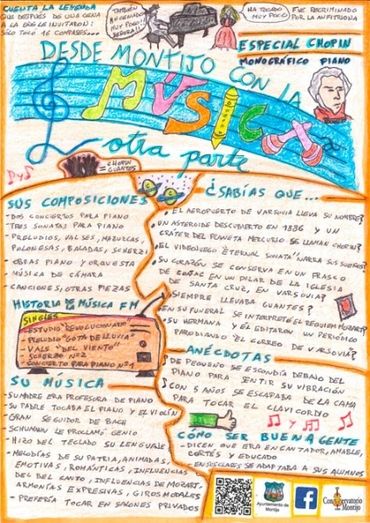 CUENTA LA LEYENDA
QUE DESPUÉS DE UNA CENA
A LA QUE LE INVITARON:
SÓLO TOCÓ 16 COMPASES...
¡TAMBIÉN
HE CENADO
MUY POCO!
SEÑORA!!
HA TOCADO
MUY POCO!
FUE RECRIMINADO
POR LA ANFITRIONA
ESPECIAL CHOPIN
MONOGRÁFICO PIANO
DESDE MONTIJO CON LA
MÚSICA
A otra parte
= CHOPIN
GUANTES
SUS COMPOSICIONES
- DOS CONCIERTOS PARA PIANO
- TRES SONATAS PARA PIANO
- PRELUDIOS, VALSES, MAZURCAS,
POLONESAS, BALADAS, SCHERZI
- OBRAS PIANO Y ORQUESTA
MÚSICA DE CÁMARA
- CANCIONES, OTRAS PIEZAS
HISTORIA DE LA MÚSICA FM
SINGLES
- ESTUDIO "REVOLUCIONARIO"
- PRELUDIO "GOTA DE LLUVIA"
- VALS "DEL VIENTO"
- SCHERZO Nº2
- CONCIERTO PARA PIANO Nº1
SU MÚSICA
- SU MADRE ERA PROFESORA DE PIANO
- SU PADRE TOCABA EL PIANO Y EL VIOLÍN
- GRAN SEGUIDOR DE BACH
- SCHUMANN LE PROCLAMÓ GENIO
- HIZO DEL TECLADO SU LENGUAJE
- MELODÍAS DE SU PATRIA, ANIMADAS,
EMOTIVAS, ROMÁNTICAS, INFLUENCIAS
DEL BEL CANTO, INFLUENCIAS DE MOZART,
ARMONÍAS EXPRESIVAS, GIROS MODALES
- PREFERÍA TOCAR EN SALONES PRIVADOS
¿SABÍAS QUE...
- EL AEROPUERTO DE VARSOVIA LLEVA SU NOMBRE?
- UN ASTEROIDE DESCUBIERTO EN 1986 Y UN
CRÁTER DEL PLANETA MERCURIO SE LLAMAN CHOPIN?
- EL VIDEOJUEGO "ETERNAL SONATA" NARRA SUS SUEÑOS?
- SU CORAZÓN SE CONSERVA EN UN FRASCO
DE COÑAC EN UN PILAR DE LA IGLESIA
DE SANTA CRUZ, EN VARSOVIA?
- SIEMPRE LLEVABA GUANTES?
- EN SU FUNERAL SE INTERPRETÓ EL REQUIEM MOZART?
- SU HERMANA Y ÉL EDITARON SU PERIÓDICO
PARODIANDO "EL CORREO DE VARSOVIA"?
ANÉCDOTAS
- DE PEQUEÑO SE ESCONDÍA DEBAJO DEL
PIANO PARA SENTIR SU VIBRACIÓN
- CON 5 AÑOS SE ESCAPABA DE LA CAMA
PARA TOCAR EL CLAVICORDIO
CÓMO SER BUENA GENTE
- DICEN QUE ERA ENCANTADOR, AMABLE,
CORTÉS Y EDUCADO
- EN SUS CLASES SE ADAPTABA A SUS ALUMNOS
Ayuntamiento de
Montijo
Conservatorio
Montijo